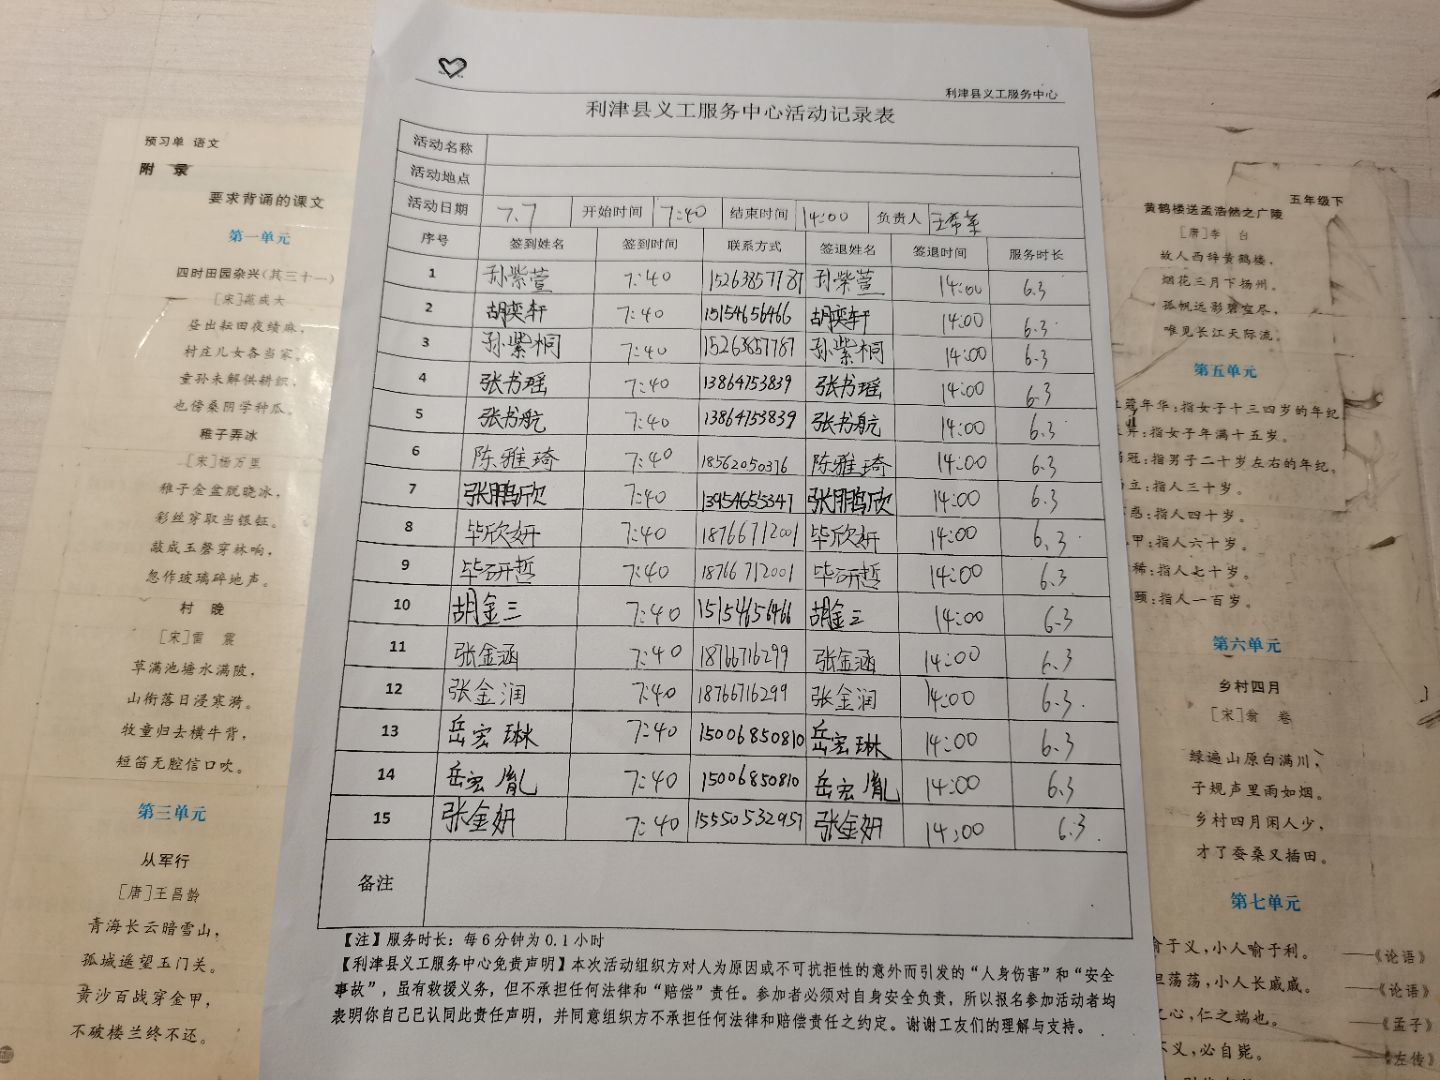 利津县义工服务中心
利津县义工服务中心活动记录表
活动名称
活动地点
活动日期 7.7 开始时间 7:40 结束时间 14:00 负责人
序号 签到姓名 签到时间 联系方式 签退姓名 签退时间 服务时长
1 孙紫萱 7:40 15263857787 孙紫萱 14:00 6.3
2 胡奕轩 7:40 15154656466 胡奕轩 14:00 6.3
3 孙紫桐 7:40 15263857787 孙紫桐 14:00 6.3
4 张书瑶 7:40 13864753839 张书瑶 14:00 6.3
5 张书航 7:40 13864753839 张书航 14:00 6.3
6 陈雅琦 7:40 18562050376 陈雅琦 14:00 6.3
7 张鹏欣 7:40 13954655347 张鹏欣 14:00 6.3
8 毕欣妍 7:40 18766712001 毕欣妍 14:00 6.3
9 毕研哲 7:40 18766712001 毕研哲 14:00 6.3
10 胡金三 7:40 15154656466 胡金三 14:00 6.3
11 张金涵 7:40 18766716299 张金涵 14:00 6.3
12 张金润 7:40 18766716299 张金润 14:00 6.3
13 岳宏琳 7:40 15006850810 岳宏琳 14:00 6.3
14 岳宏胤 7:40 15006850810 岳宏胤 14:00 6.3
15 张金妍 7:40 15550532957 张金妍 14:00 6.3
备注
【注】服务时长：每6分钟为0.1小时
【利津县义工服务中心免责声明】本次活动组织方对人为原因或不可抗拒性的意外而引发的“人身伤害”和“安全
事故”，虽有救援义务，但不承担任何法律和“赔偿”责任。参加者必须对自身安全负责，所以报名参加活动者均
表明你自己已认同此责任声明，并同意组织方不承担任何法律和赔偿责任之约定。谢谢工友们的理解与支持。
预习单 语文
附 录
要求背诵的课文
第一单元
四时田园杂兴(其三十一)
[宋]范成大
昼出耘田夜绩麻，
村庄儿女各当家。
童孙未解供耕织，
也傍桑阴学种瓜。
稚子弄冰
[宋]杨万里
稚子金盆脱晓冰，
彩丝穿取当银钲。
敲成玉磬穿林响，
忽作玻璃碎地声。
村 晚
[宋]雷 震
草满池塘水满陂，
山衔落日浸寒漪。
牧童归去横牛背，
短笛无腔信口吹。
第三单元
从军行
[唐]王昌龄
青海长云暗雪山，
孤城遥望玉门关。
黄沙百战穿金甲，
不破楼兰终不还。
五年级下
黄鹤楼送孟浩然之广陵
[唐]李 白
故人西辞黄鹤楼，
烟花三月下扬州。
孤帆远影碧空尽，
唯见长江天际流。
第五单元
年华：指女子十三四岁的年纪
：指女子年满十五岁。
冠：指男子二十岁左右的年纪。
立：指人三十岁。
惑：指人四十岁。
甲：指人六十岁。
稀：指人七十岁。
颐：指人一百岁。
第六单元
乡村四月
[宋]翁 卷
绿遍山原白满川，
子规声里雨如烟。
乡村四月闲人少，
才了蚕桑又插田。
第七单元
喻于义，小人喻于利。 ——《论语》
坦荡荡，小人长戚戚。 ——《论语》
之心，仁之端也。 ——《孟子》
不义，必自毙。 ——《左传》